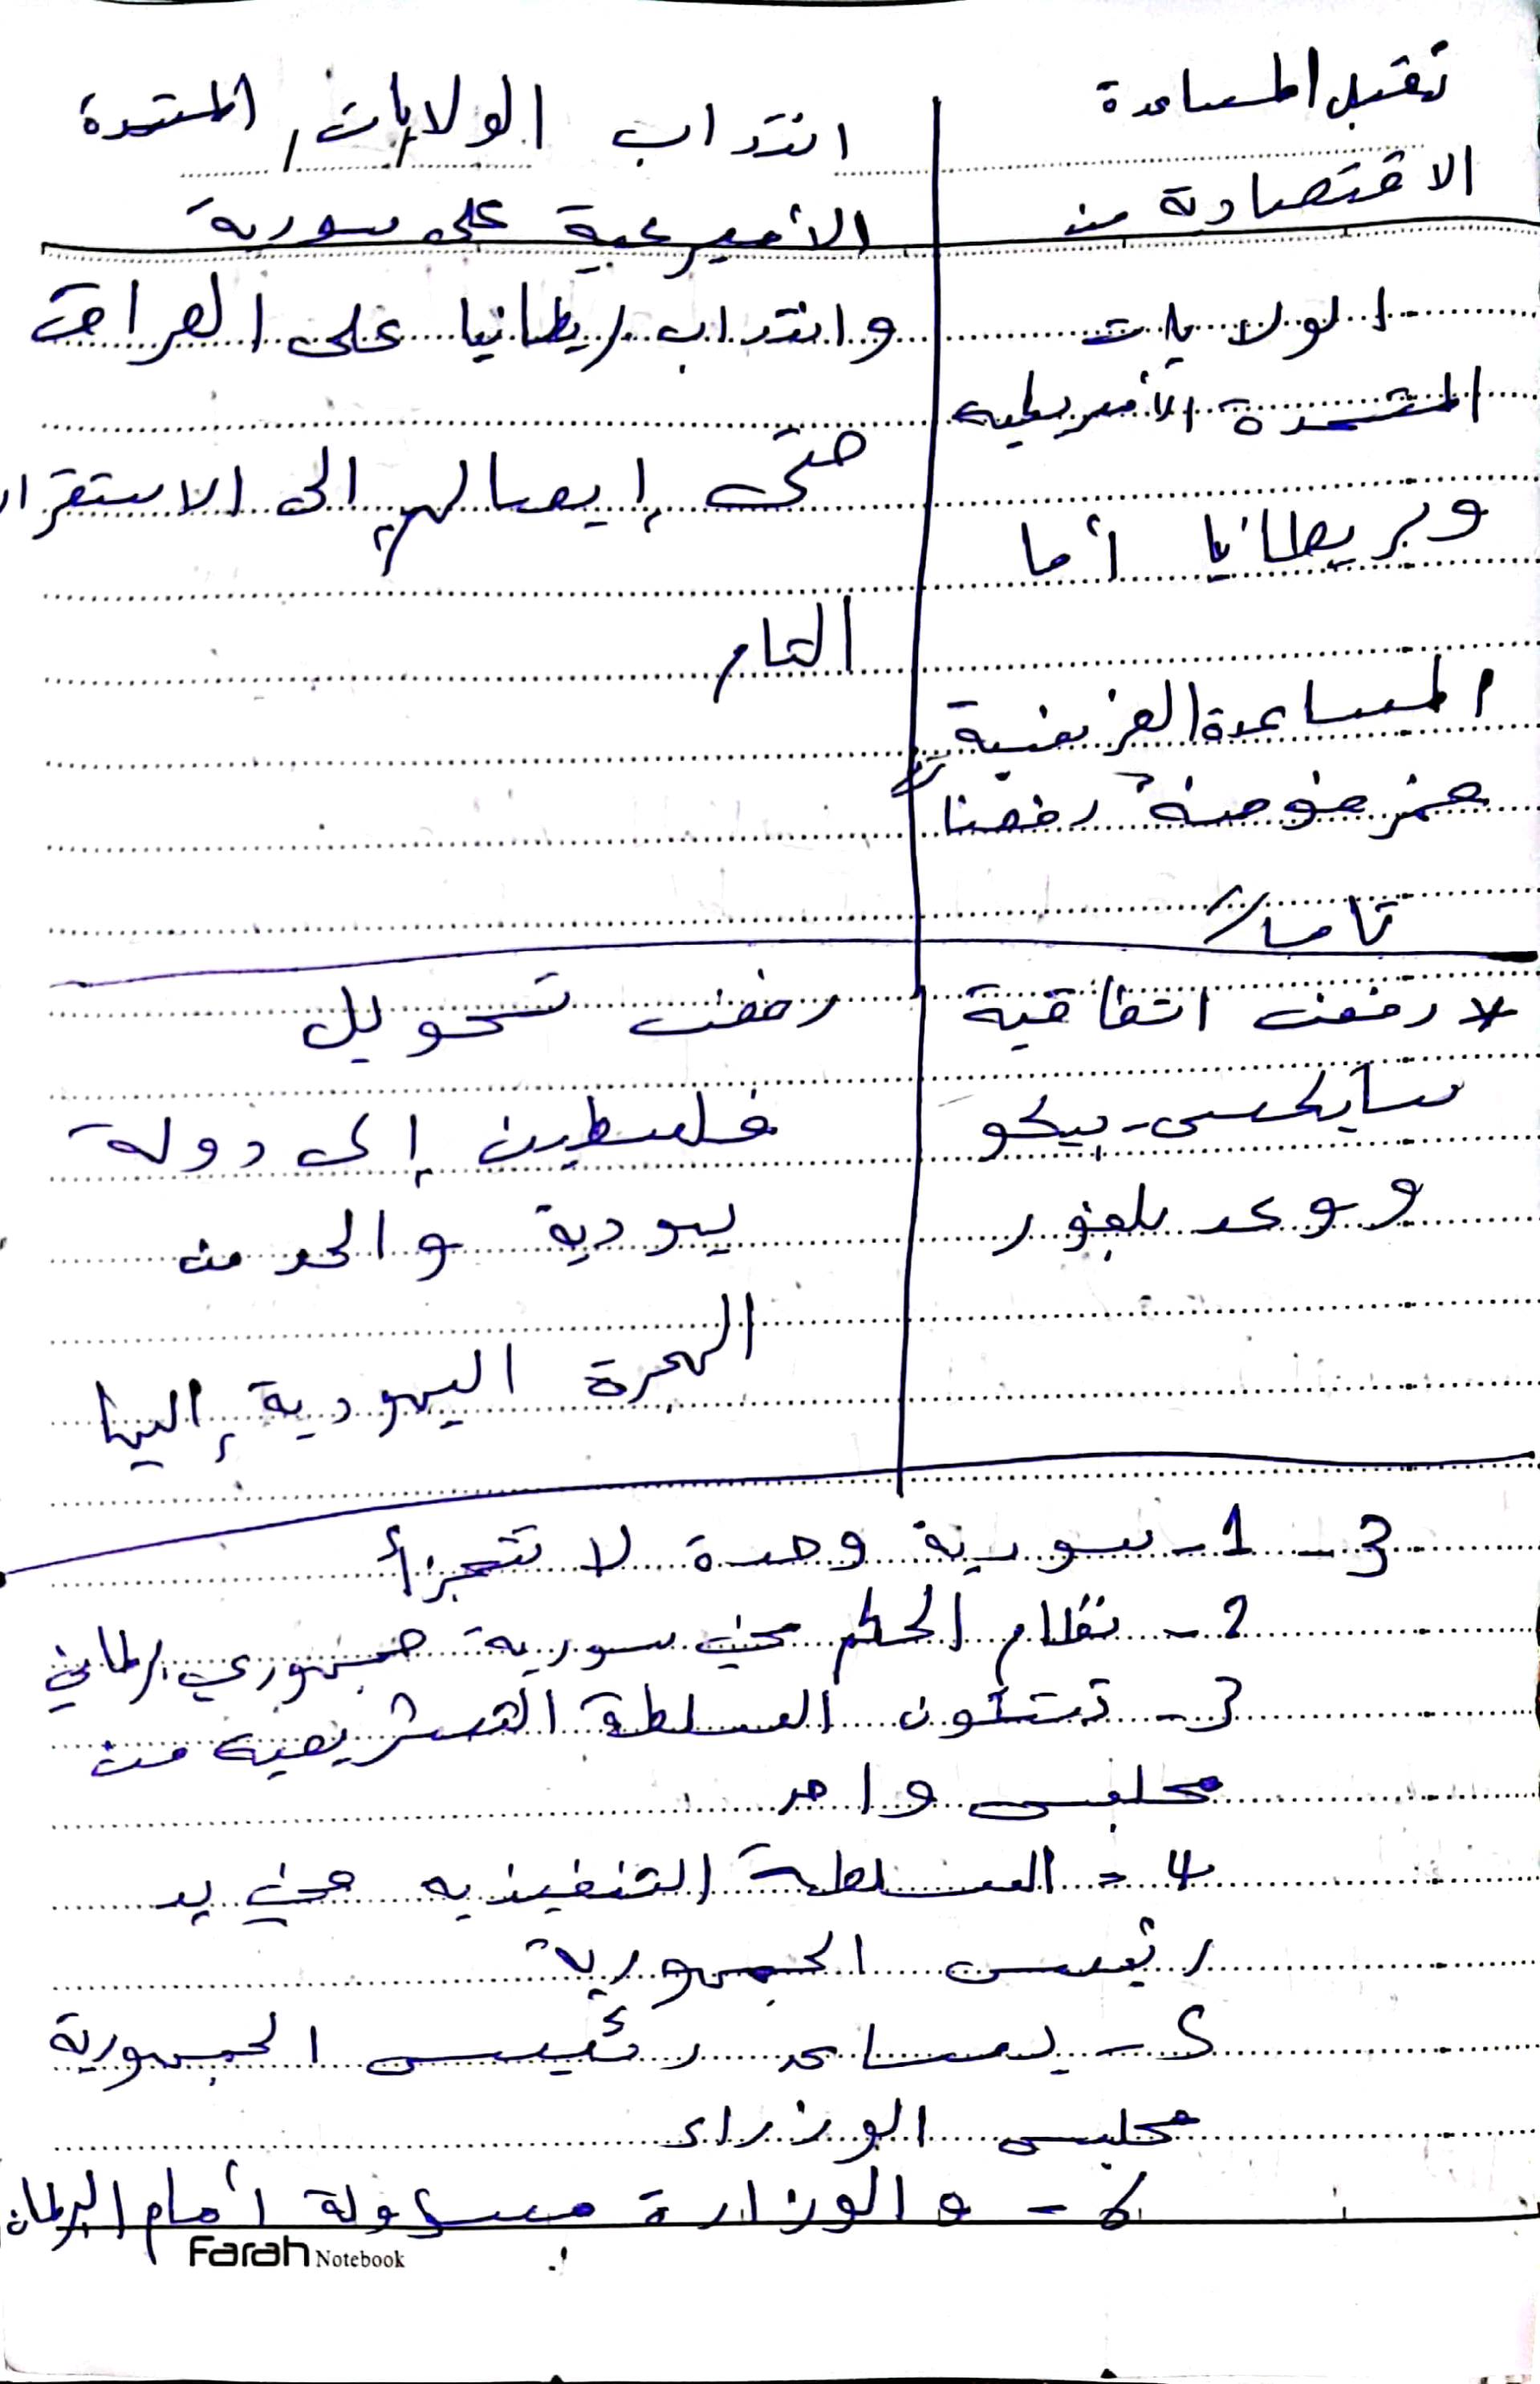 تقبل المساعدة
الاقتصادية من
الولايات
المتحدة الأمريكية
وبريطانيا أما
المساعدة الفرنسية
فمرفوضة رفضاً
تاماً
انتداب الولايات المتحدة
الأميركية على سورية
وانتداب بريطانيا على العراق
حتى إيصالهم إلى الاستقرار
التام
* رفضت اتفاقية
سايكس-بيكو
ووعد بلفور
رفضت تحويل
فلسطين إلى دولة
يهودية والحد من
الهجرة اليهودية إليها
3 - 1 - سورية وحدة لا تتجزأ
2 - نظام الحكم في سورية جمهوري برلماني
3 - تتكون السلطة التشريعية من
مجلس واحد
4 - السلطة التنفيذيه في يد
رئيس الجمهورية
5 - يساعد رئيس الجمهورية
مجلس الوزراء
6 - والوزارة مسؤولة أمام البرلمان
Farah Notebook